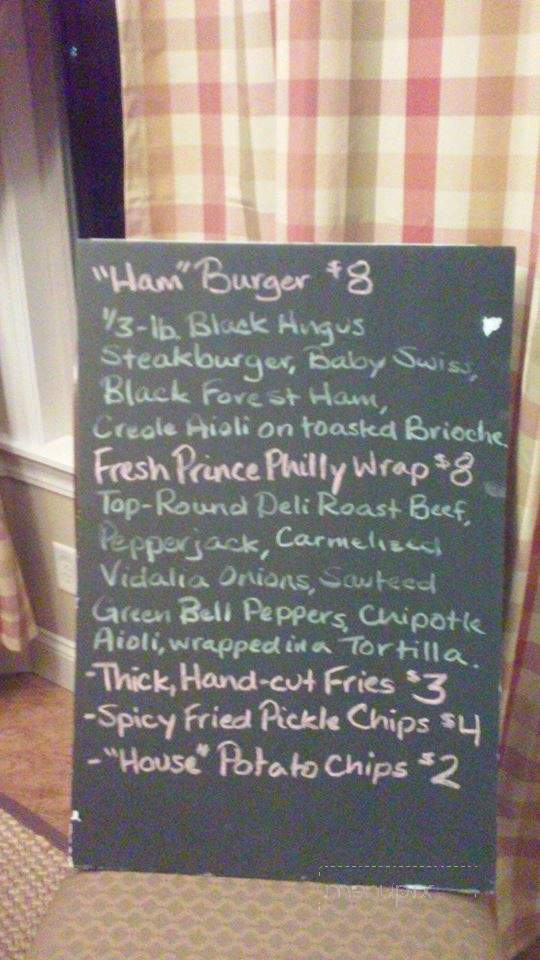 "Ham" Burger $8
1/3-lb. Black Angus
Steakburger, Baby Swiss,
Black Forest Ham,
Creole Aioli on toasted Brioche
Fresh Prince Philly Wrap $8
Top-Round Deli Roast Beef,
Pepperjack, Carmelized
Vidalia Onions, Sauteed
Green Bell Peppers, Chipotle
Aioli, wrapped in a Tortilla.
-Thick, Hand-cut Fries $3
-Spicy Fried Pickle Chips $4
-"House" Potato Chips $2
menupix